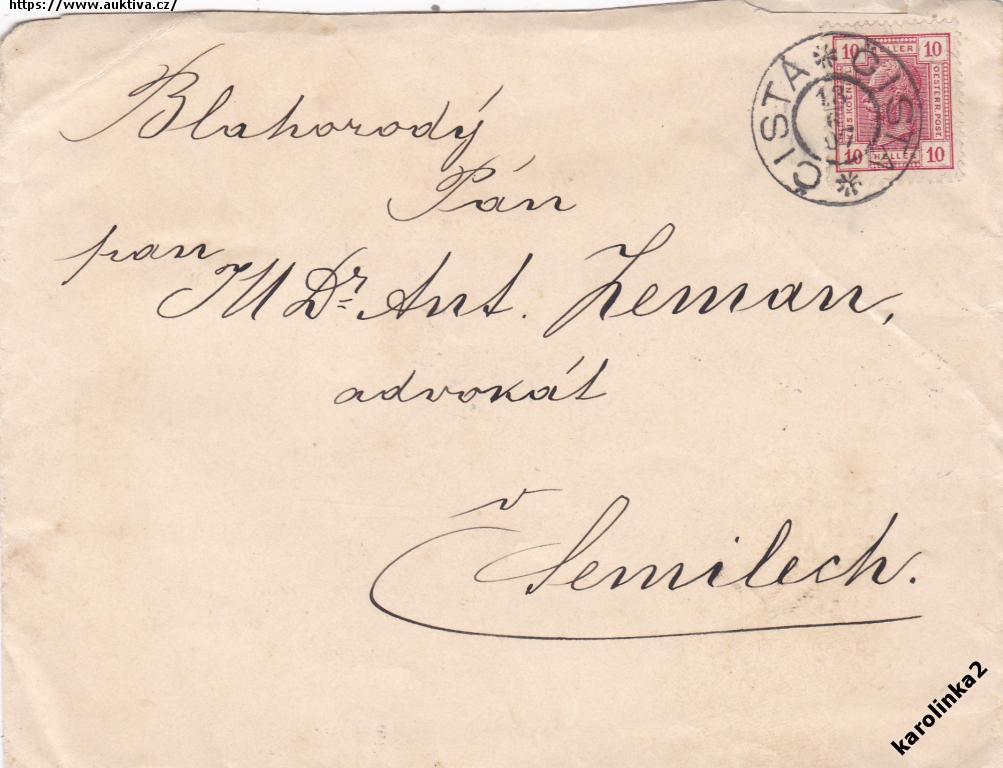 https://www.auktiva.cz/
ČISTÁ * ČISTÁ *
13
10 HELLER 10
OESTERR. POST
10 HELLER 10
Blahorodý
Pán
pan
JUDr. Ant. Zeman,
advokát
v
Semilech.
karolinka2